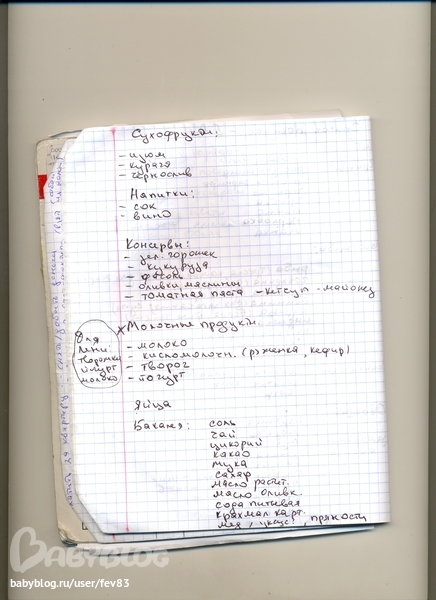 Сухофрукты:
- изюм
- курага
- чернослив
Напитки:
- сок
- вино
Консервы:
- зел. горошек
- кукуруза
- фасоль
- оливки, маслины
- томатная паста - кетсуп - майонез
Молочные продукты.
- молоко
- кисломолочн. (ряженка, кефир)
- творог
- йогурт
Для
Яни:
творожки
йогурт
молоко
яйца
Бакалея: соль
чай
цикорий
какао
мука
сахар
масло растит.
масло оливк.
сода питьевая
крахмал карт.
мёд, уксус, пряности
BABYBLOG
babyblog.ru/user/fev83